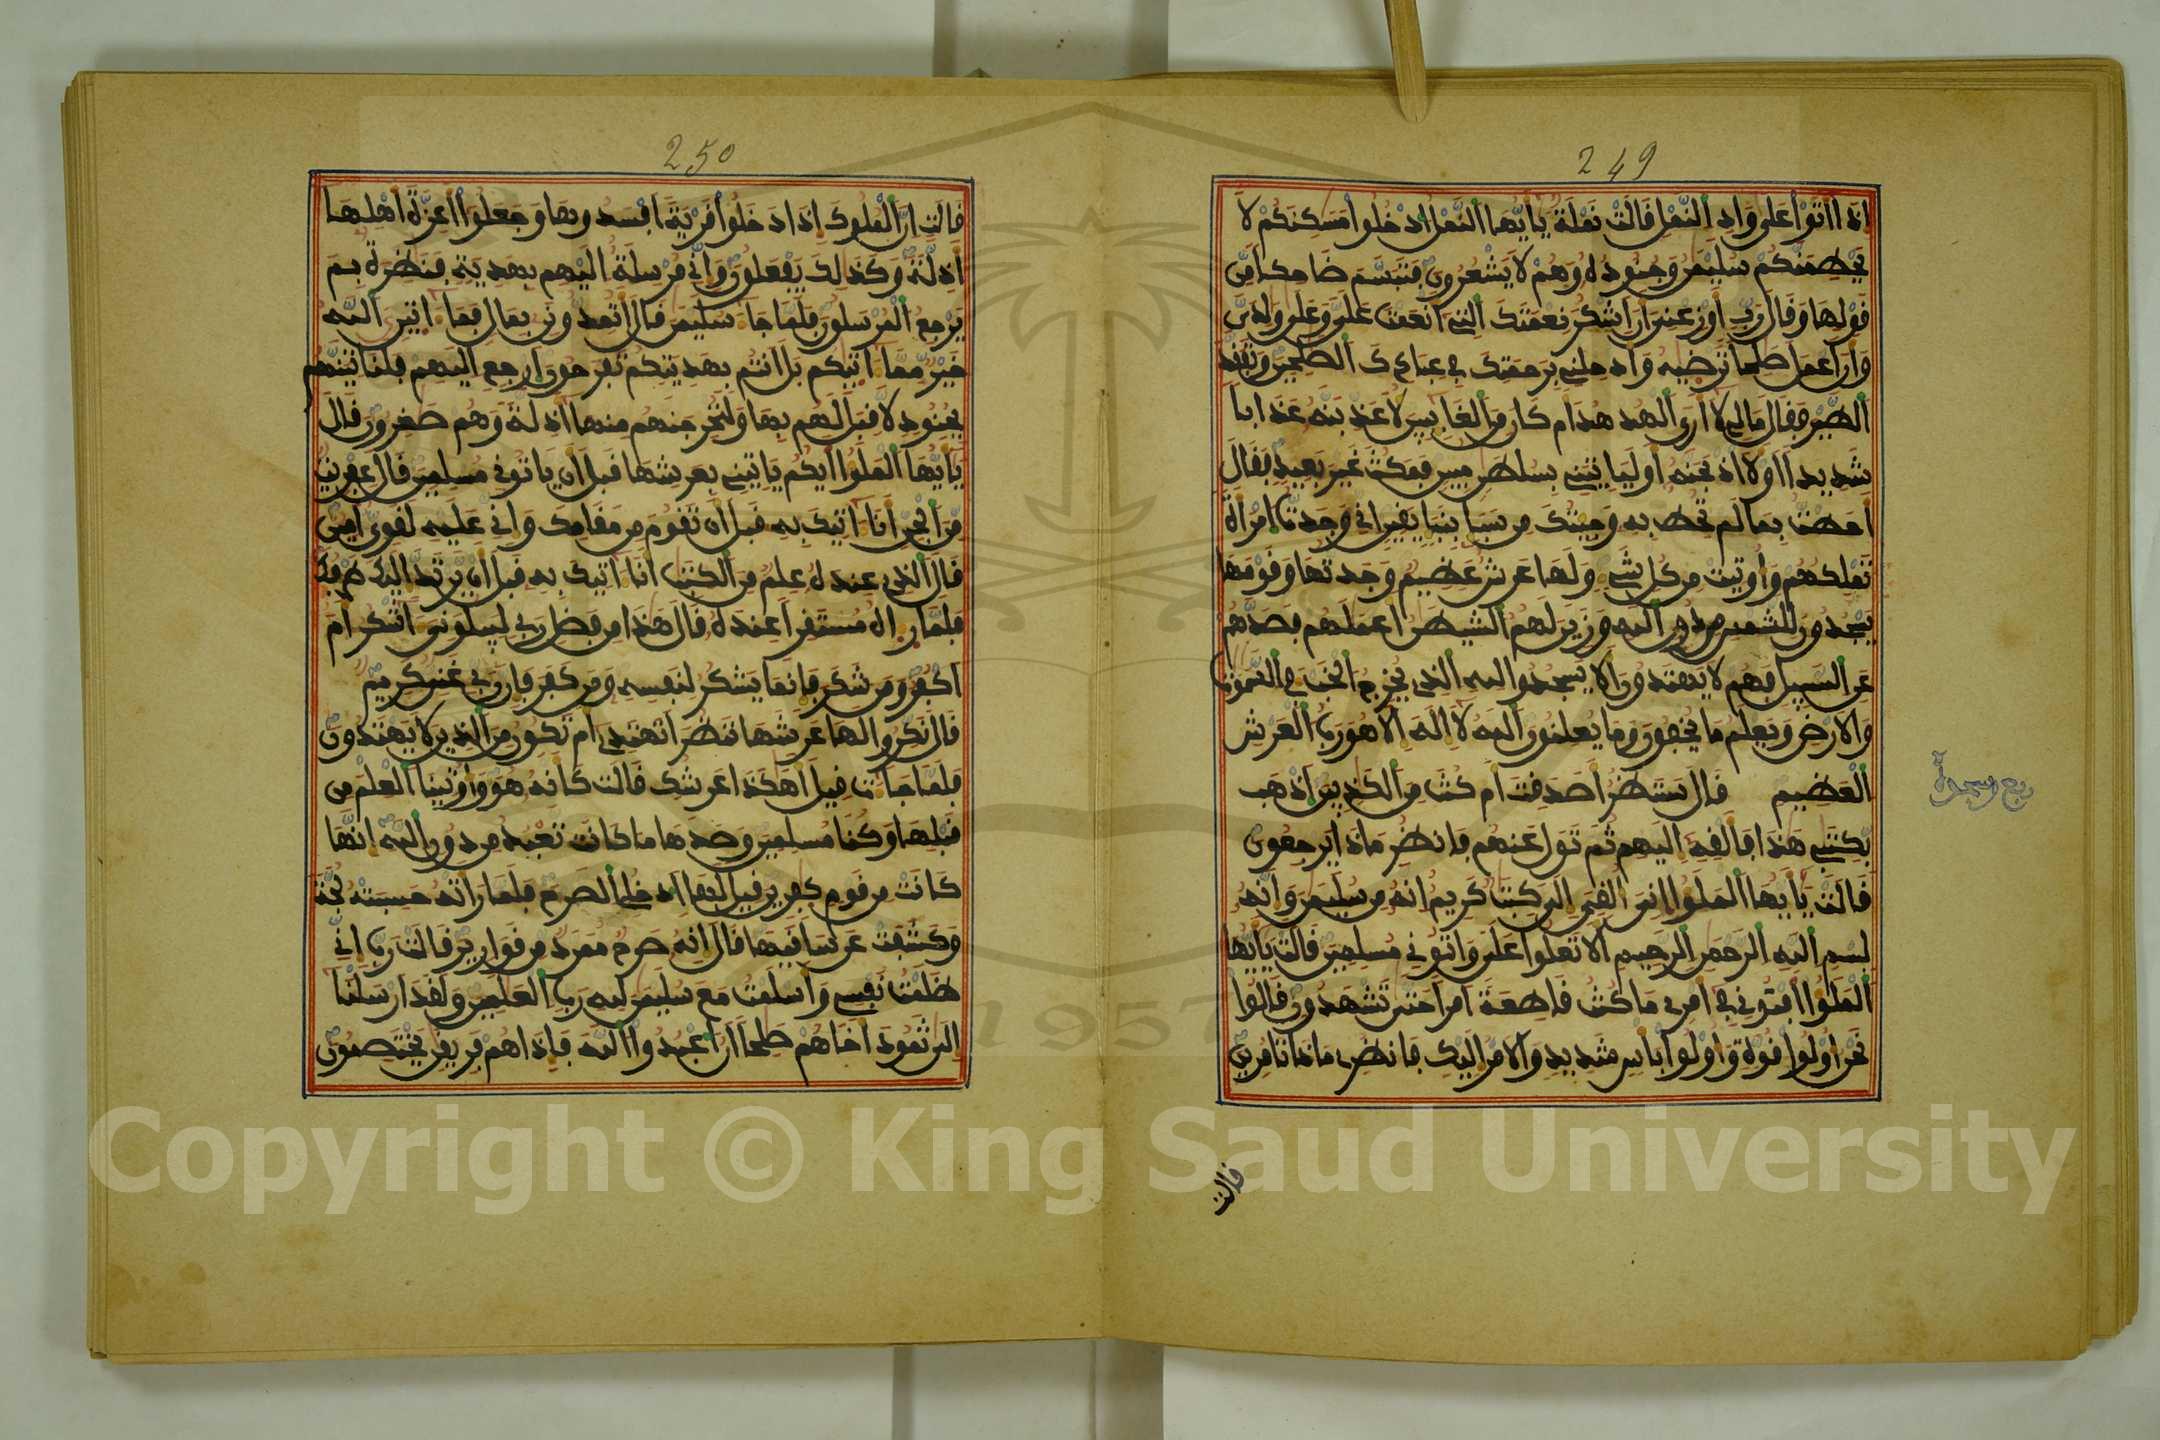 249
اذا اتوا على واد النمل قالت نملة يايها النمل ادخلوا مسكنكم لا
يحطمنكم سليمن وجنوده وهم لا يشعرون فتبسم ضاحكا من
قولها وقال رب اوزعني ان اشكر نعمتك التي انعمت علي وعلى ولدي
وان اعمل صلحا ترضيه وادخلني برحمتك في عبادك الصلحين وتفقد
الطير فقال مالي لا ارى الهدهد ام كان من الغايبين لاعذبنه عذابا
شديدا اولا اذبحنه او لياتيني بسلطن مبين فمكث غير بعيد فقال
احطت بما لم تحط به وجيتك من سبا بنبا يقين اني وجدت امراة
تملكهم واوتيت من كل شي ولها عرش عظيم وجدتها وقومها
يسجدون للشمس من دون الله وزين لهم الشيطن اعملهم فصدهم
عن السبيل فهم لا يهتدون الا يسجدوا لله الذي يخرج الخب في السموت
والارض ويعلم ما يخفون وما يعلنون الله لا اله الا هو رب العرش
العظيم قال سننظر اصدقت ام كنت من الكذبين اذهب
بكتبي هذا فالقه اليهم ثم تول عنهم فانظر ماذا يرجعون
قالت يايها الملؤا اني القي الي كتب كريم انه من سليمن وانه
بسم الله الرحمن الرحيم الا تعلوا علي واتوني مسلمين قالت يايها
الملؤا افتوني في امري ما كنت قاطعة امرا حتى تشهدون قالوا
نحن اولوا قوة واولوا باس شديد والامر اليك فانظري ماذا تامرين
قالت
ربع وسجدة
250
قالت ان الملوك اذا دخلوا قرية افسدوها وجعلوا اعزة اهلها
اذلة وكذلك يفعلون واني مرسلة اليهم بهدية فنظرة بم
يرجع المرسلون فلما جا سليمن قال اتمدونن بمال فما اتين الله
خير مما اتيكم بل انتم بهديتكم تفرحون ارجع اليهم فلناتينهم
بجنود لا قبل لهم بها ولنخرجنهم منها اذلة وهم صغرون قال
يايها الملؤا ايكم ياتيني بعرشها قبل ان ياتوني مسلمين قال عفريت
من الجن انا اتيك به قبل ان تقوم من مقامك واني عليه لقوي امين
قال الذي عنده علم من الكتب انا اتيك به قبل ان يرتد اليك طرفك
فلما راه مستقرا عنده قال هذا من فضل ربي ليبلوني اشكر ام
اكفر ومن شكر فانما يشكر لنفسه ومن كفر فان ربي غني كريم
قال نكروا لها عرشها ننظر اتهتدي ام تكون من الذين لا يهتدون
فلما جات قيل اهكذا عرشك قالت كانه هو واوتينا العلم من
قبلها وكنا مسلمين وصدها ما كانت تعبد من دون الله انها
كانت من قوم كفرين قيل لها ادخلي الصرح فلما راته حسبته لجة
وكشفت عن ساقيها قال انه صرح ممرد من قوارير قالت رب اني
ظلمت نفسي واسلمت مع سليمن لله رب العلمين ولقد ارسلنا
الى ثمود اخاهم صلحا ان اعبدوا الله فاذا هم فريقن يختصمون
1957
Copyright © King Saud University